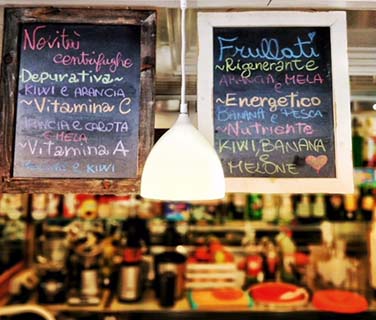 Novità
centrifughe
Depurativa~
KIWI e ARANCIA
~Vitamina C
ARANCIA e CAROTA
e MELA
~Vitamina A
e KIWI
Frullati
~Rigenerante
ARANCIA, MELA
e
~Energetico
BANANA e PESCA
~Nutriente
KIWI, BANANA
e
MELONE